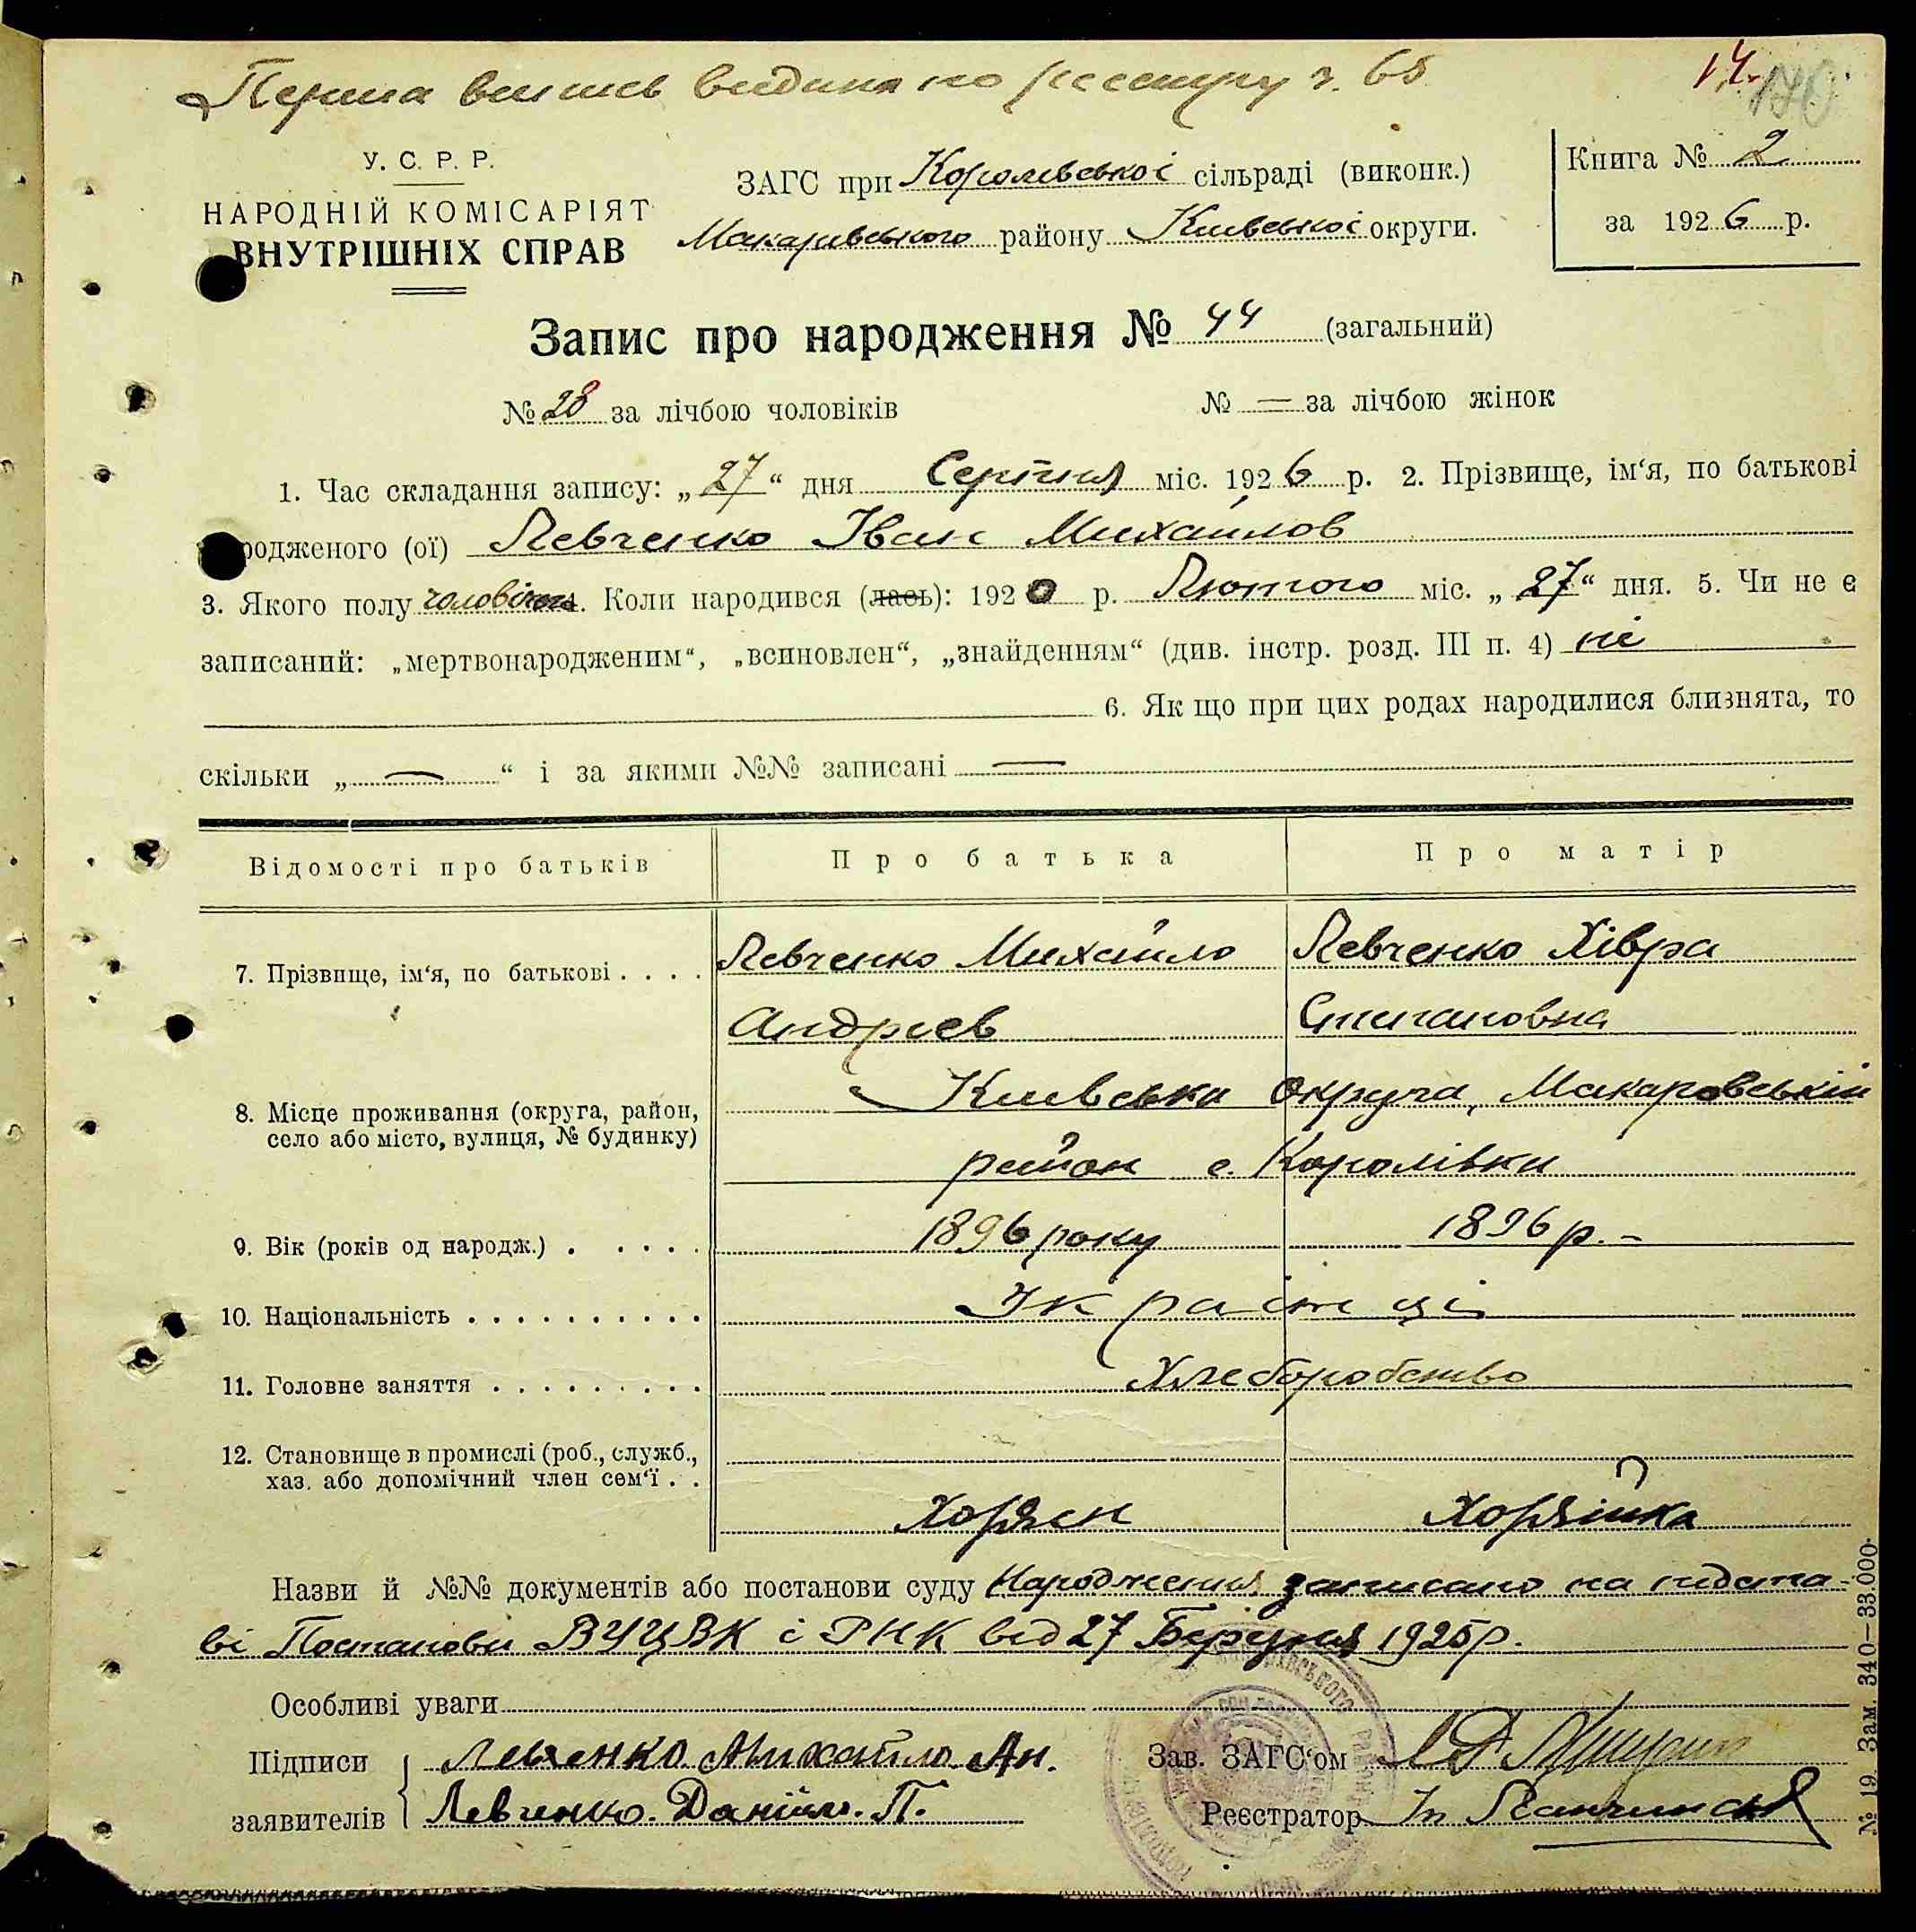 Перша випись видана по реєстру ч. 65
14.
У. С. Р. Р.
НАРОДНІЙ КОМІСАРІЯТ
ВНУТРІШНІХ СПРАВ
ЗАГС при Королівської сільраді (виконк.)
Макарівського району Київської округи.
Книга № 2
за 1926 р.
Запис про народження № 44 (загальний)
№ 28 за лічбою чоловіків № — за лічбою жінок
1. Час складання запису: „27“ дня Серпня міс. 1926 р. 2. Прізвище, ім‘я, по батькові
родженого (ої) Левченко Іван Михайлов
3. Якого полу чоловічого. Коли народився (лась): 1920 р. Лютого міс. „27“ дня. 5. Чи не є
записаний: „мертвонародженим“, „всиновлен“, „знайденням“ (див. інстр. розд. III п. 4) ні
6. Як що при цих родах народилися близнята, то
скільки „—“ і за якими №№ записані —
Відомості про батьків Про батька Про матір
7. Прізвище, ім‘я, по батькові . . . . Левченко Михайло Левченко Хівра
Андрієв Степановна
8. Місце проживання (округа, район, село або місто, вулиця, № будинку) Київська Округа, Макаровський
район с. Королівки
9. Вік (років од народж.) . . . . . 1896 року 1896 р. –
10. Національність . . . . . . . . . . Українці
11. Головне заняття . . . . . . . . . Хлеборобство
12. Становище в промислі (роб., служб.,
хаз. або допомічний член сем‘ї . .
Хозяєн Хозяйка
Назви й №№ документів або постанови суду Народження записано на підста-
ві Постанови ВУЦВК і РНК від 27 Березня 1925 р.
Особливі уваги
Підписи Левченко Михайло Ан. Зав. ЗАГС‘ом
заявителів Левченко. Даніїл. П. Реєстратор
№ 19. Зам. 340—33.000.